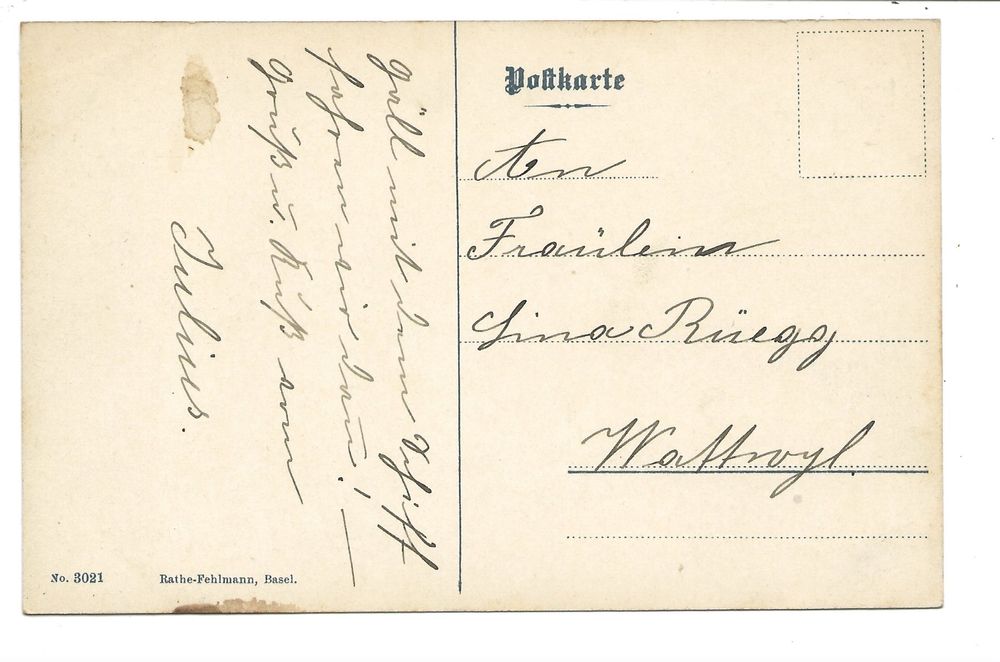 Gäll mit dem Schiff
fahren wir dan̄! —
Gruß u. Kuß vom
Julius.
Postkarte
An
Fraülein
Lina Rüegg
Wattwyl.
No. 3021
Rathe-Fehlmann, Basel.